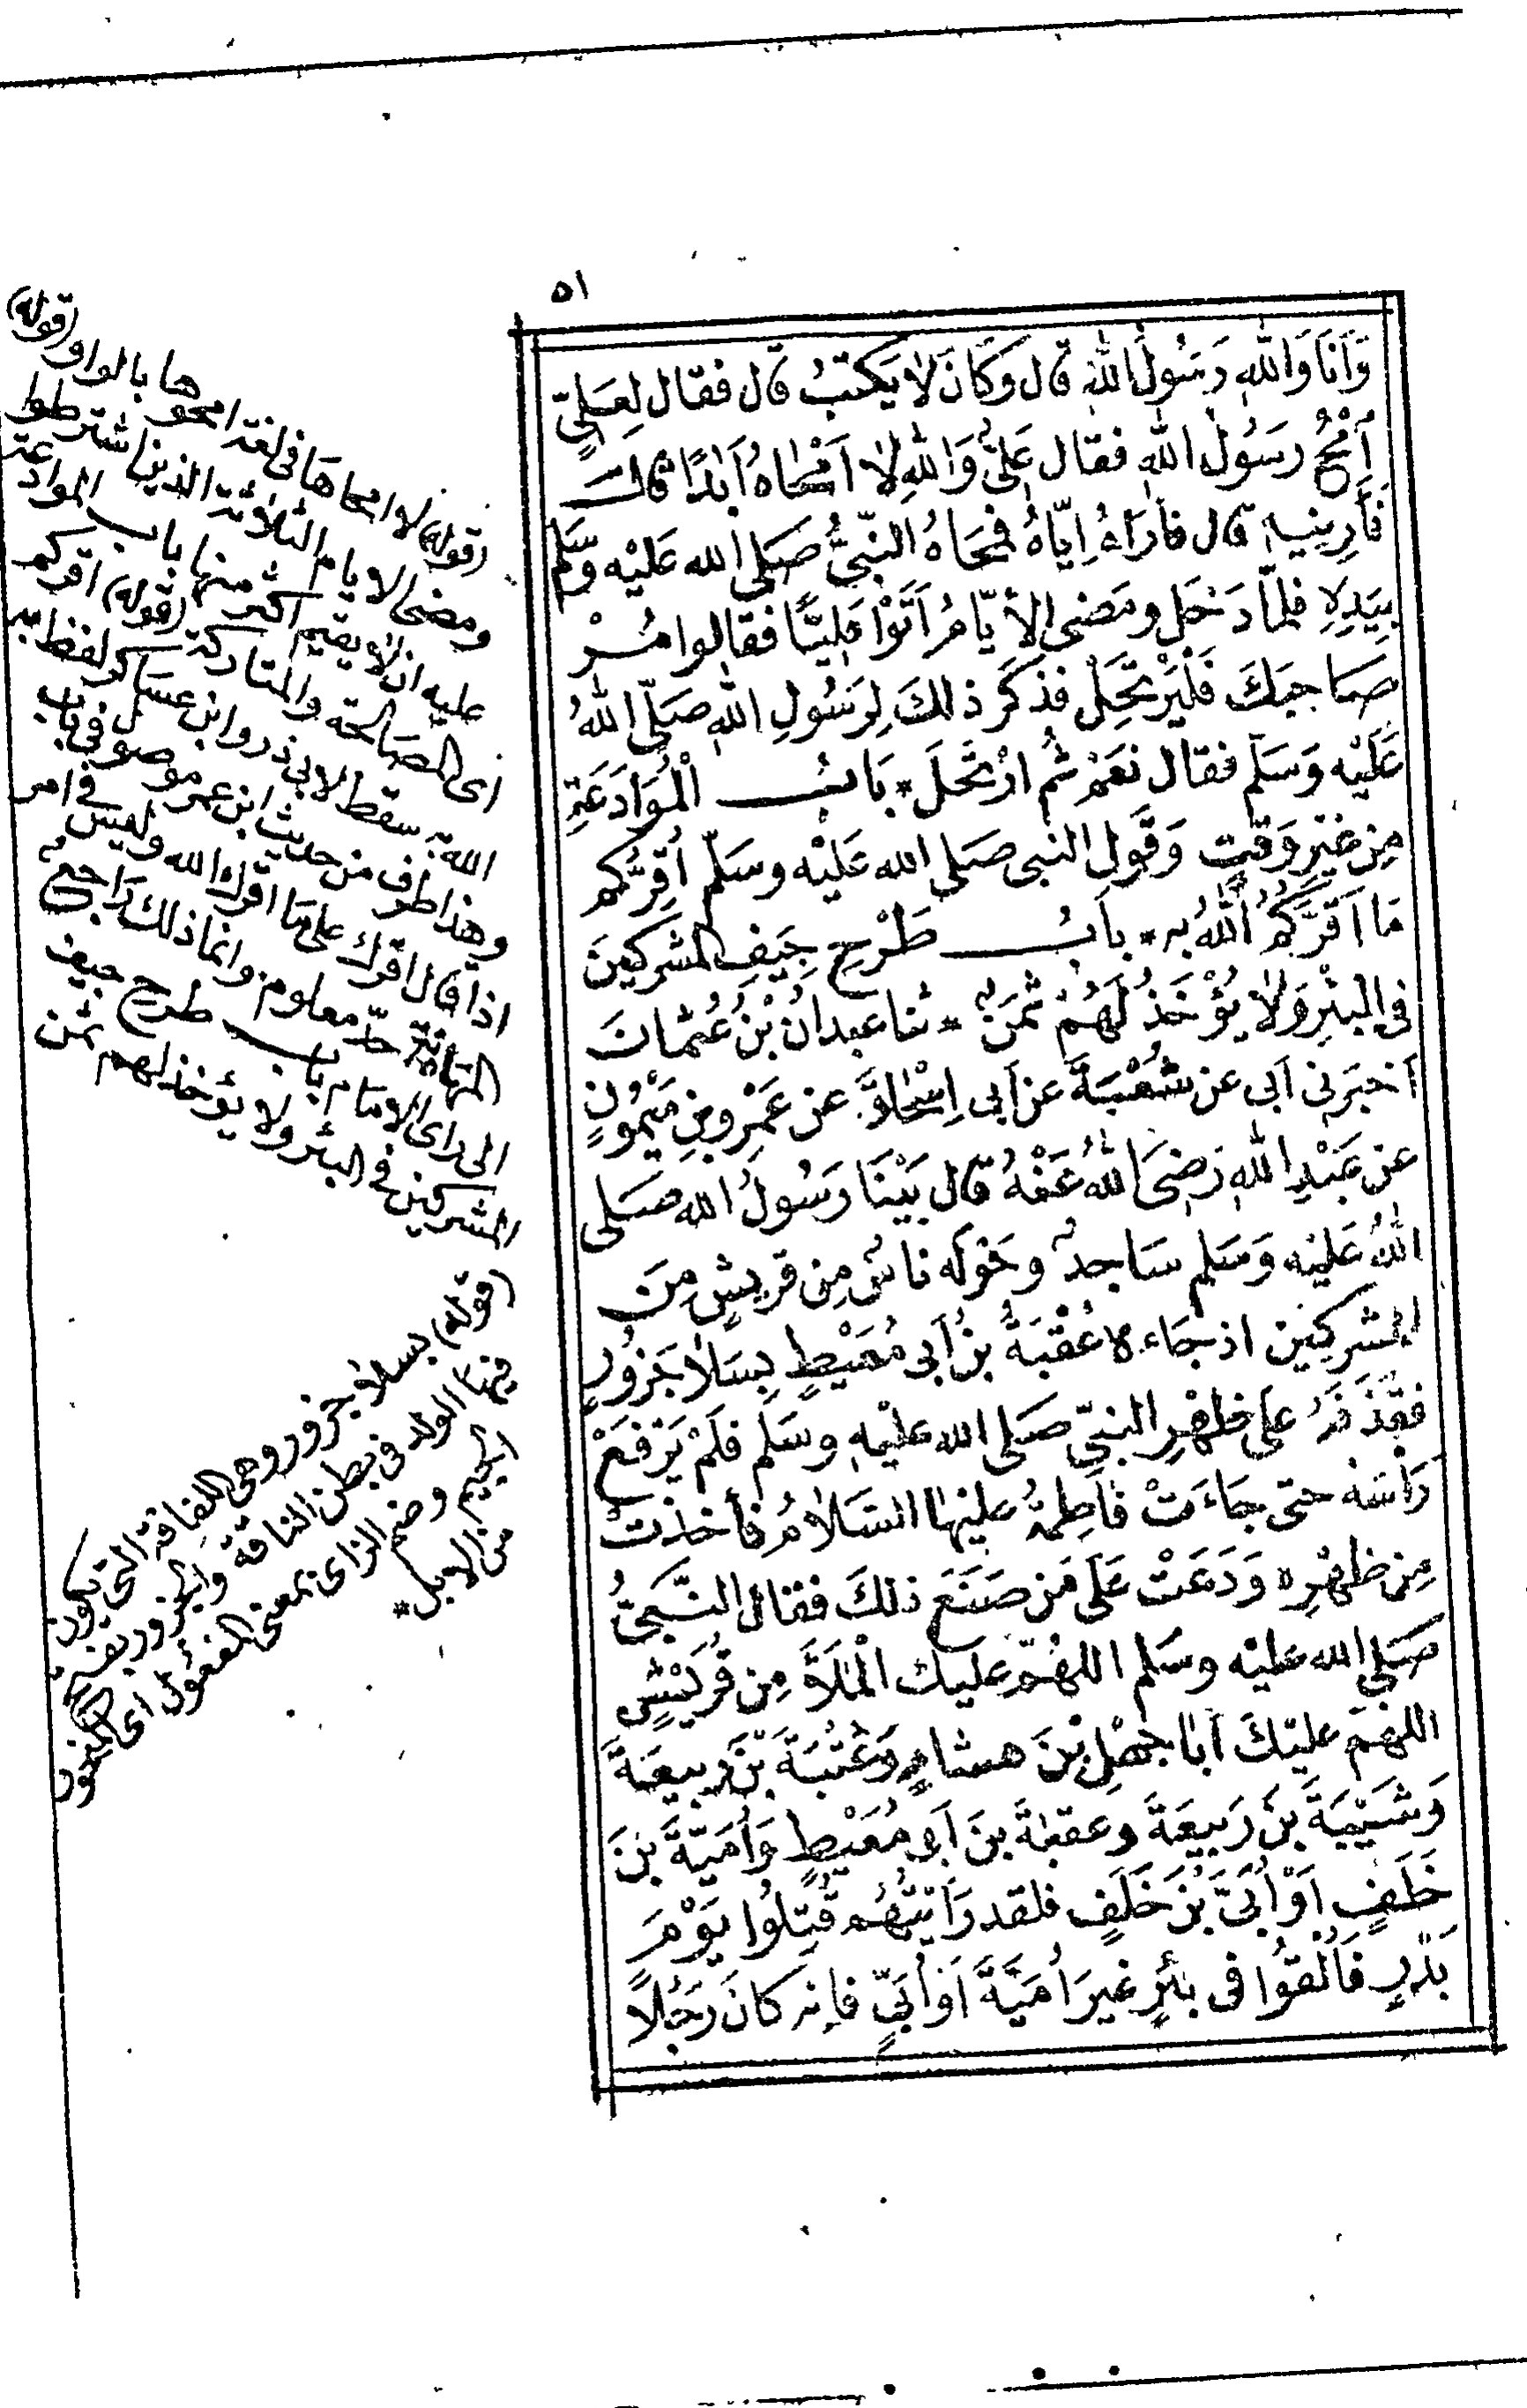 ٥١
وَأَنَا وَاللّٰهِ رَسُولُ اللّٰهِ قال وَكَانَ لا يَكْتُبُ قال فقال لِعَلِيٍّ
اُمْحُ رسَولَ اللّٰهِ فقال عَلِيٌّ وَاللّٰهِ لا اَمْحَاهُ اَبَدًا قال
فَأَرِنِيهِ قال فأَرَاهُ اِيَّاهُ فمَحَاهُ النَّبِيُّ صَلى الله عَلَيْه وَسَّلَّم
بِيَدِهِ فلمّا دَخل ومَضى الأيّامُ اَتَوْا عَلِيًّا فقالوا مُرْ
صَاحِبَكَ فَلْيَرْتَحِلْ فذكَرَ ذلكَ لِرَسُولِ اللّٰهِ صَلّى اللّٰهُ
عَلَيْه وَسَلّم فقال نعَمْ ثُم ارْتَحلَ * بَابُ الْمُوَادَعَةِ
مِن غَيْرِ وَقتٍ وَقَولِ النبى صَلى الله عَلَيْه وسَلّم أُقِرُّكم
مَا اَقَرَّكُمُ اللّٰهُ به * بابُ طَرْحِ جِيَفِ المشركينَ
فى البِئْرِ وَلا يُؤْخَذُ لَهُمْ ثَمَنٌ * ثنا عبدانُ بْنُ عُثمانَ
اَخبَرَنى اَبى عن شُعْبَةَ عن اَبى اِسْحَاقَ عن عَمْرِو بنِ مَيْمُونٍ
عن عَبْدِ اللّٰهِ رَضِىَ اللّٰهُ عَنْهُ قال بَيْنَا رَسُولُ الله صَلى
اللّٰهُ عَليْه وَسَلم سَاجدٌ وحَوْلَه ناسٌ مِن قريشٍ مِنَ
المشركِين اذ جَاءه عُقْبَةُ بنُ اَبى مُعَيْطٍ بِسَلا جَزُورٍ
فقَذَفَهُ على ظَهْرِ النبِىّ صَلى الله عليْه وسَلم فلَمْ يَرْفَعْ
رَاسَه حتى جَاءَتْ فاطِمَةُ عليْها السَّلامُ فأخذتْ
مِن ظهْرِه وَدَعَتْ عَلَى مَن صَنَعَ ذلكَ فقال النَّبِىُّ
صَلى الله عَليْه وسَلم اللهُمّ عليك الْمَلَأَ مِن قُرَيْشٍ
اللهُمّ عليْكَ اَبا جَهْلِ بْنَ هشامٍ وَعُتْبَةَ بْنَ رَبِيعَةَ
وَشَيْبَةَ بنَ رَبيعَةَ وعقبَةَ بنَ اَبى مُعَيْطٍ وَاُمَيَّةَ بنَ
خَلَفٍ اَوْ اُبَىَّ بْنَ خَلَفٍ فلقد رَاَيْتُهُم قُتِلُوا يَوْمَ
بَدْرٍ فَاُلْقُوا فى بِئْرٍ غيرَ اُمَيَّةَ اَوْ اُبَىٍّ فإنه كانَ رَجُلًا
(قوله) لا امحاها فى لغة امحوها بالواو (قوله)
ومضى الايام الثلاثة الذين اشترطوا
عليه ان لا يقيم اكثر منها باب الموادعة
اى المصالحة والمتاركة (قوله) اقركم
الله سقط لابى ذر وابن عساكر لفظ به
وهذا طرف من حديث ابن عمر موصول فى باب
اذا قال اقرك على ما اقرك الله وليس فى امر
المهادنة حدّ معلوم وانما ذلك راجع
الى راى الامام باب طرح جيف
المشركين فى البئر ولا يؤخذ لهم ثمن
(قوله) بسلا جزور وهى اللفافة التى يكون
فيها الولد فى بطن الناقة والجزور بفتح
الجيم وضم الزاى بمعنى المفعول اى المنحور
من الابل *